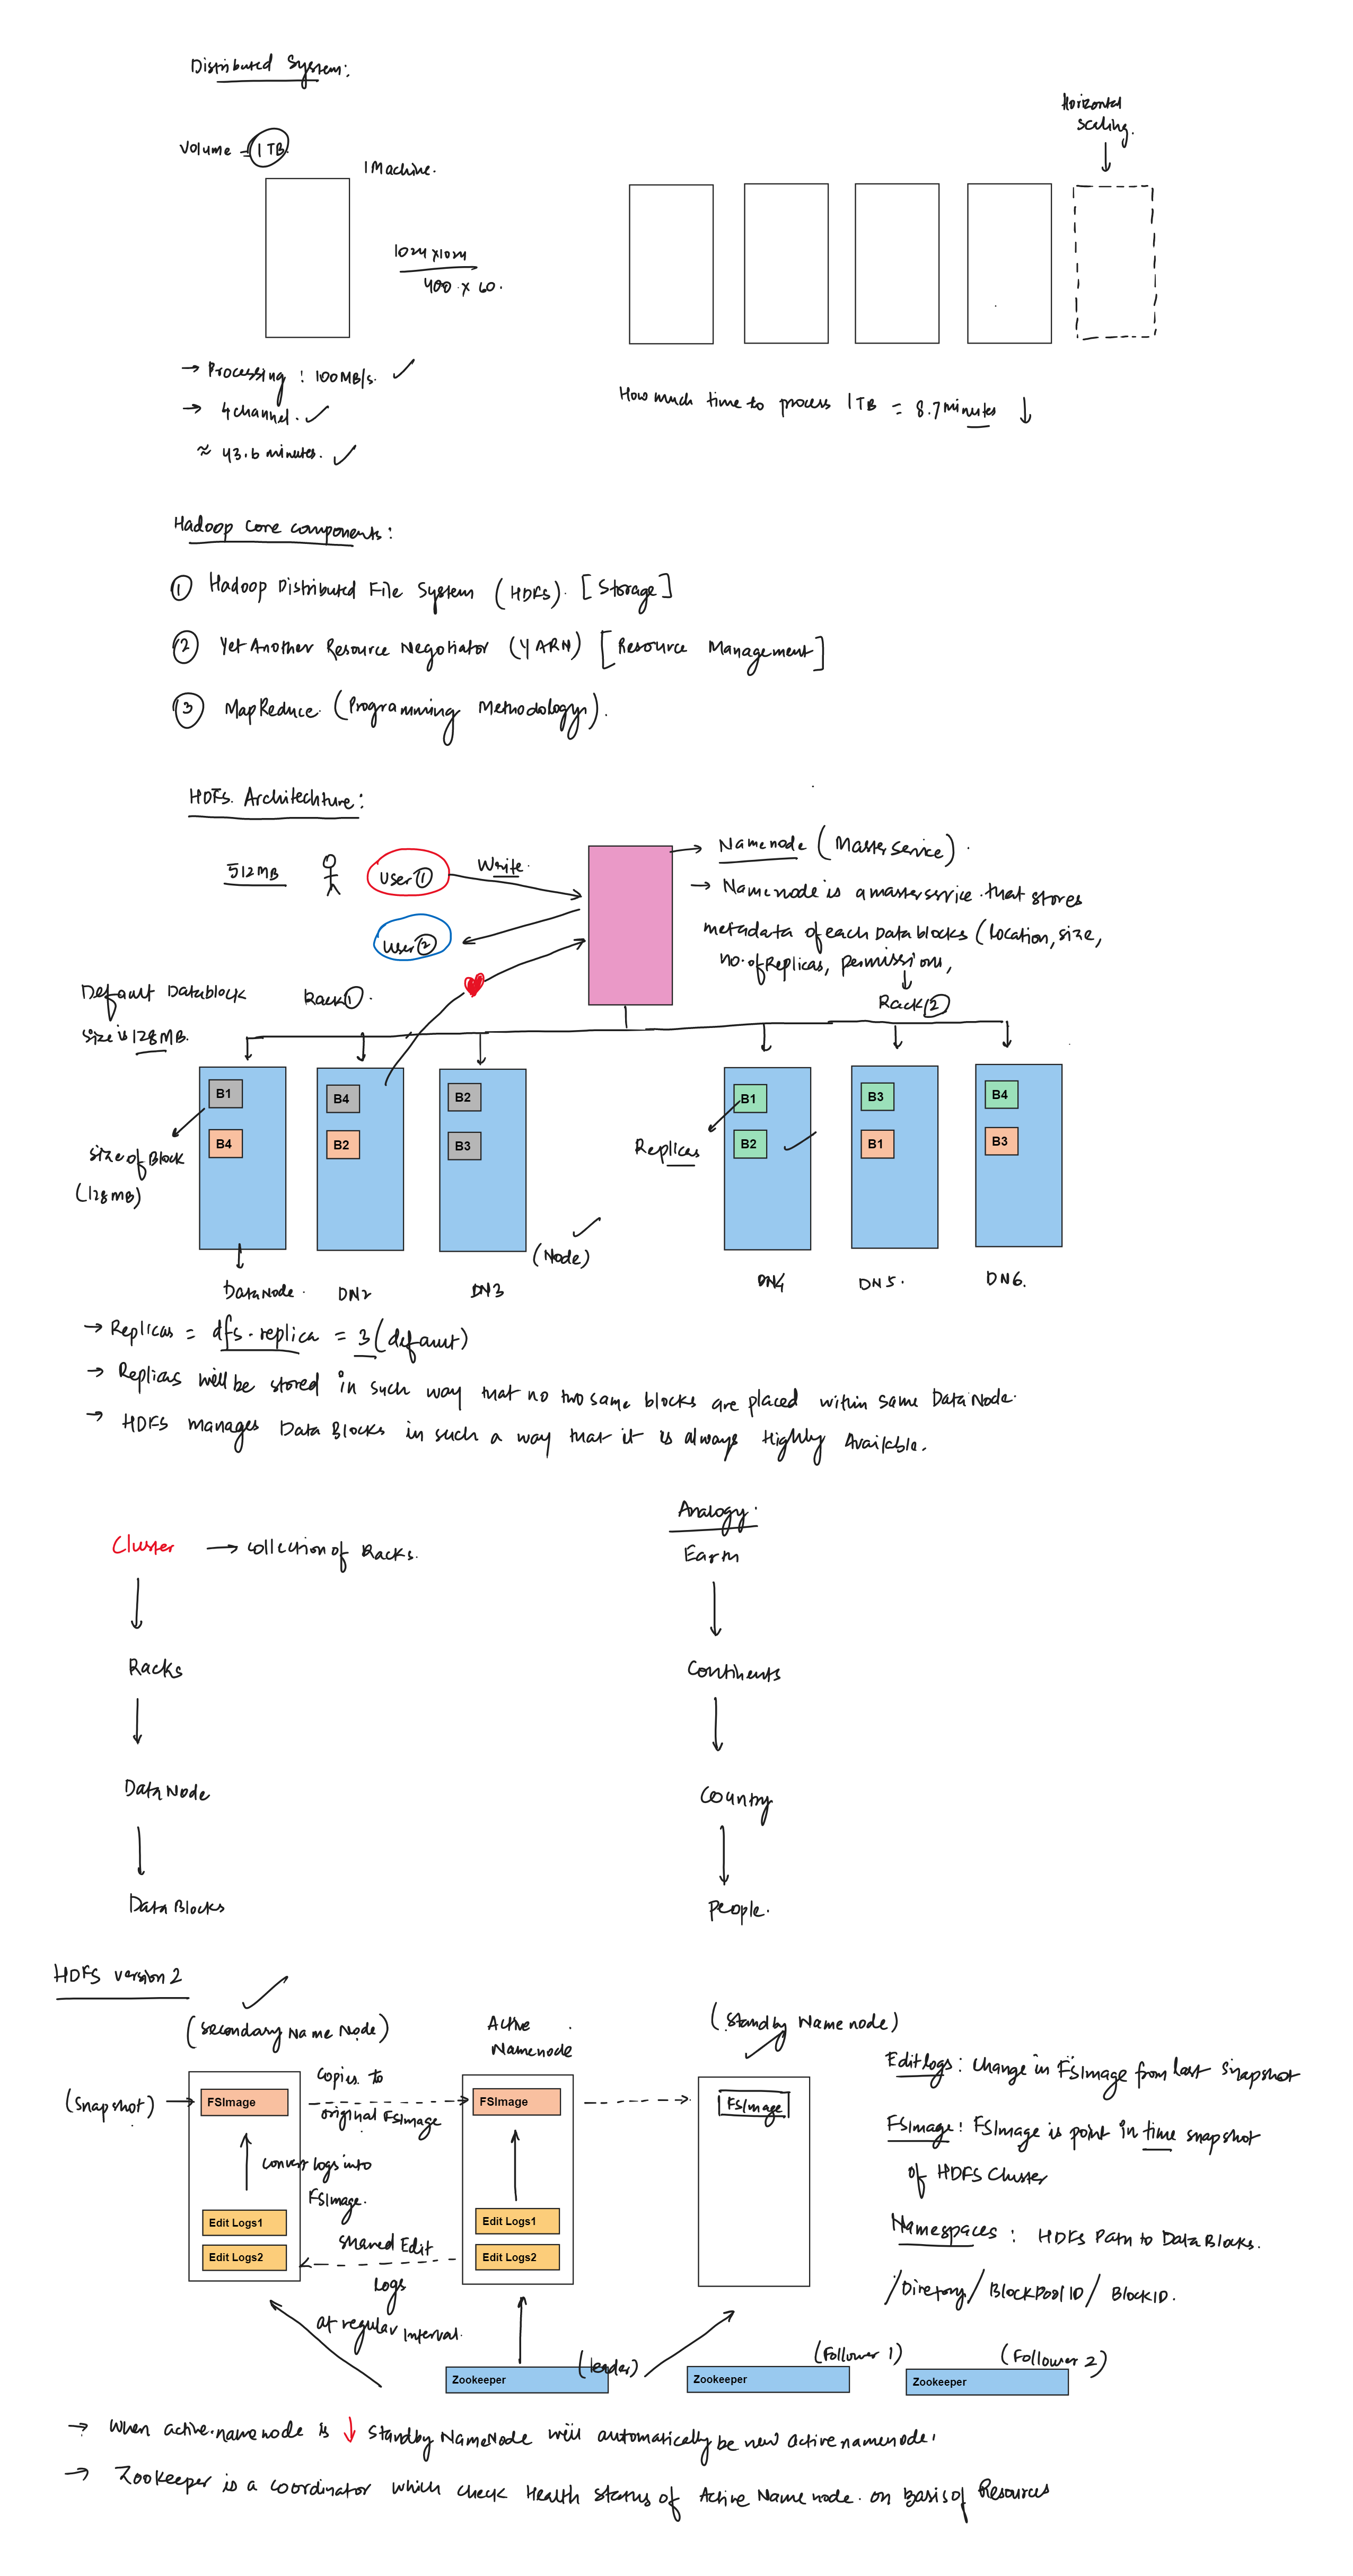 Distributed System:
Volume = 1 TB
1 Machine.
1024 x 1024
400 x 60.
→ Processing : 100MB/s. ✓
→ 4 channel. ✓
≈ 43.6 minutes. ✓
Horizontal
scaling.
How much time to process 1 TB = 8.7 minutes ↓
Hadoop core components:
① Hadoop Distributed File System (HDFS). [Storage]
② Yet Another Resource Negotiator (YARN) [Resource Management]
③ MapReduce. (Programming Methodology).
HDFS. Architechture:
512MB
User ①
Write.
User ②
→ Namenode (Master Service).
→ Namenode is a master service that stores
metadata of each Data blocks (location, size,
no. of Replicas, permissions,
Default Datablock
size is 128 MB.
Rack ①.
Rack ②
B1
B4
B4
B2
B2
B3
B1
B2
B3
B1
B4
B3
size of Block
(128MB)
Replicas
(Node)
DataNode.
DN2
DN3
DN4
DN5.
DN6.
→ Replicas = dfs.replica = 3 (default)
→ Replicas will be stored in such way that no two same blocks are placed within same DataNode.
→ HDFS manages Data Blocks in such a way that it is always Highly Available.
Cluster → collection of Racks.
Racks
DataNode
Data Blocks
Analogy.
Earth
Continents
Country
People.
HDFS version 2
(Secondary Name Node)
Active
Namenode
(Standby Namenode)
(Snapshot) →
FSImage
copies to
original FSImage
FSImage
FSImage
convert logs into
FSImage.
Edit Logs1
Edit Logs2
shared Edit
logs
at regular interval.
Edit Logs1
Edit Logs2
Edit logs : Change in FSImage from last snapshot
FSImage : FSImage is point in time snapshot
of HDFS Cluster
Namespaces : HDFS Path to Data Blocks.
/Diretory/ BlockPool ID / BlockID.
(leader)
Zookeeper
(Follower 1)
Zookeeper
(Follower 2)
Zookeeper
→ When active namenode is ↓ standby NameNode will automatically be new active namenode.
→ Zookeeper is a coordinator which check Health status of Active Namenode. on basis of Resources